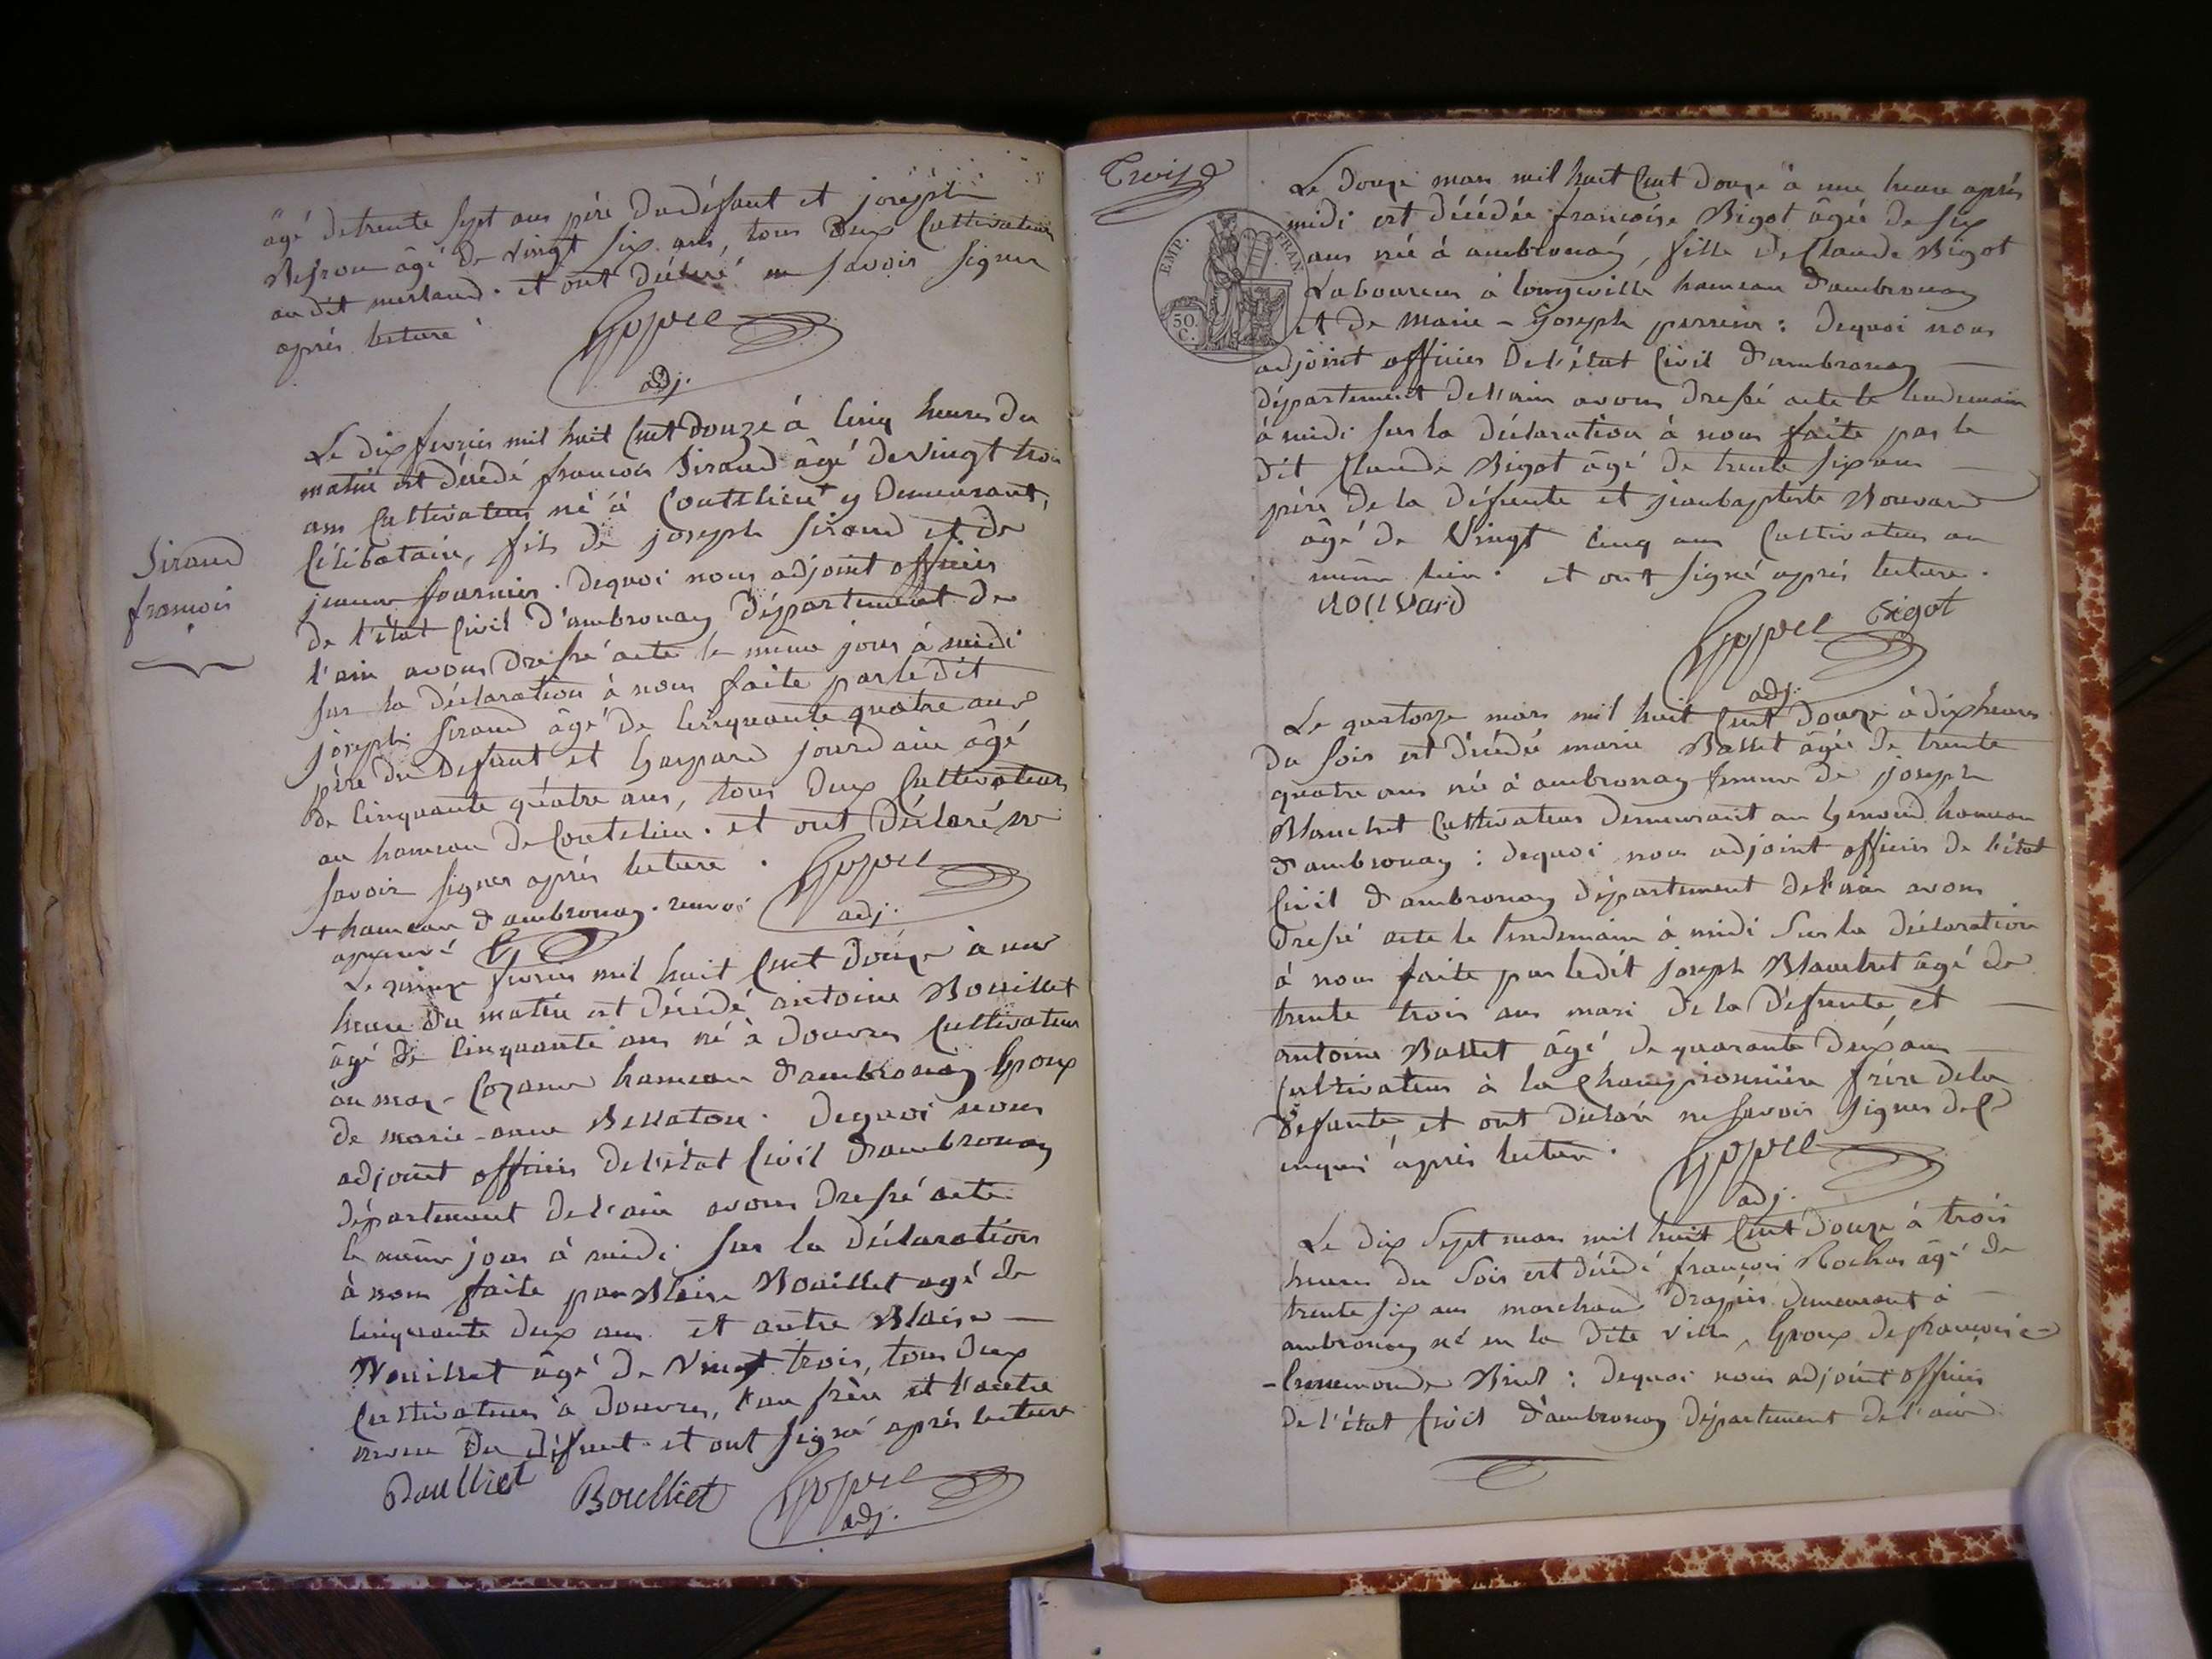 âgé de trente sept ans père du défunt et joseph
âgé de vingt six ans, tous deux Cultivateurs
au dit merland. et ont déclaré ne savoir signer
après lecture
adj.
Le dix fevrier mil huit Cent douze à Cinq heures du
matin est décédé francois Siraud âgé de vingt trois
ans Cultivateur né à Coutelieu + y demeurant,
Célibataire, fils de joseph Siraud et de
jeanne fournier. dequoi nous adjoint officier
de l'état Civil d'ambronay département de
l'ain avons dressé acte le même jour à midi
sur la déclaration à nous faite par le dit
joseph Siraud âgé de Cinquante quatre ans
père du défunt et Gaspard jourdain âgé
de Cinquante quatre ans, tous deux Cultivateurs
au hameau de Coutelieu. et ont déclaré ne
savoir signer après lecture.
+ hameau d'ambronay. renvoi
approuvé
adj.
Siraud
francois
Le quinze fevrier mil huit Cent douze à une
heure du matin est décédé antoine Bouillet
âgé de Cinquante ans né à douvres Cultivateur
au hameau d'ambronay Epoux
de marie-anne Bellaton. Dequoi nous
adjoint officier de l'état Civil d'ambronay
département de l'ain avons dressé acte
le même jour à midi sur la déclaration
à nous faite par Blaise Bouillet agé de
Cinquante deux ans et autre Blaise
Bouillet âgé de Vingt trois, tous deux
Cultivateurs à douvres, l'un frère et l'autre
neveu du défunt. et ont signé après lecture
Boulliet Boulliet
adj.
Treize
EMP. FRAN.
50.
C.
Le douze mars mil huit Cent douze à une heure après
midi est décédée francoise Bigot âgée de six
ans née à ambronay, fille de Claude Bigot
Laboureur à longeville hameau d'ambronay
et de Marie-Joseph perrin : dequoi nous
adjoint officier de l'état Civil d'ambronay
département de l'ain avons dressé acte le lendemain
à midi sur la déclaration à nous faite par le
dit Claude Bigot âgé de trente six ans
père de la défunte et jeanbaptiste Bouvard
âgé de Vingt Cinq ans Cultivateur au
même lieu. et ont signé après lecture.
Bouvard
Bigot
adj.
Le quatorze mars mil huit Cent douze à dix heures
du soir est décédée marie Ballet âgée de trente
quatre ans née à ambronay femme de joseph
Blanchet Cultivateur demeurant au Genoud hameau
d'ambronay : dequoi nous adjoint officier de l'état
Civil d'ambronay département de l'ain avons
dressé acte le lendemain à midi sur la déclaration
à nous faite par ledit joseph Blanchet âgé de
trente trois ans mari de la défunte, et
antoine Ballet âgé de quarante deux ans
Cultivateur à la Championnière frère de la
défunte, et ont déclaré ne savoir signer de ce
enquis après lecture.
adj.
Le dix sept mars mil huit Cent douze à trois
heures du soir est décédé francois Rochas âgé de
trente six ans marchand drapier demeurant à
ambronay né en la dite ville, Epoux de francoise
: dequoi nous adjoint officier
de l'état Civil d'ambronay département de l'ain